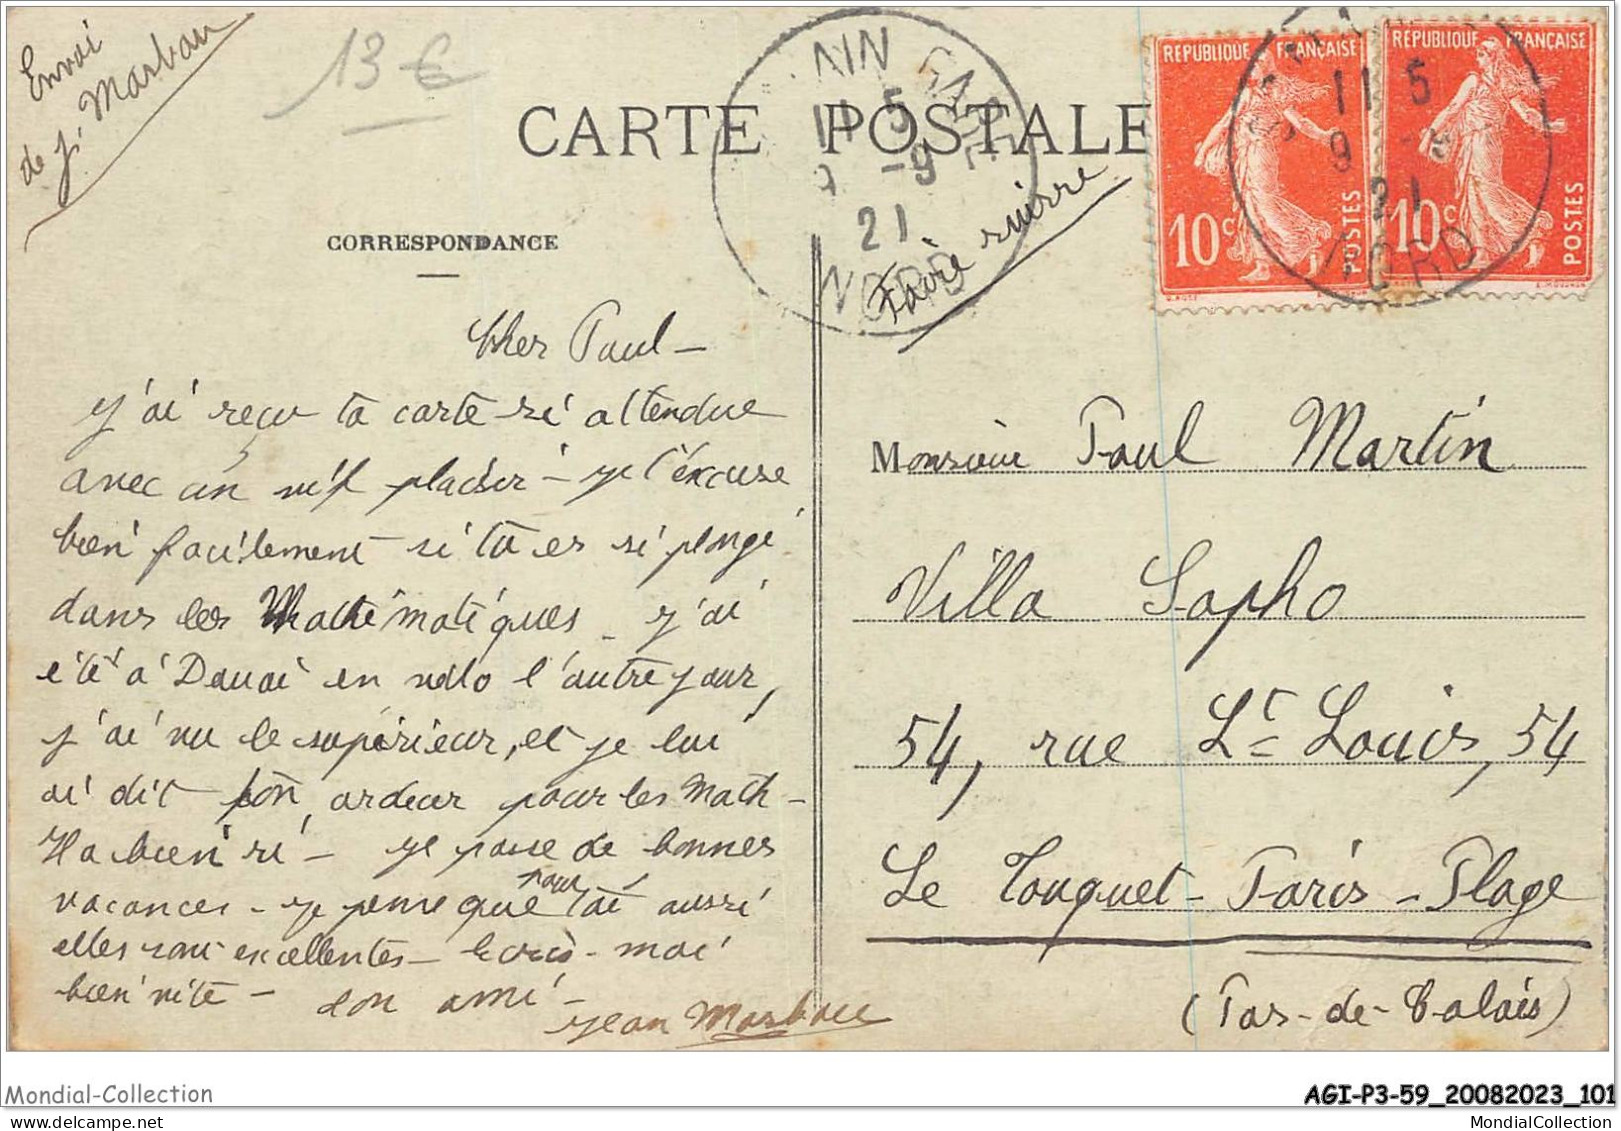 Envoi
de J. Marbau
13 €
CARTE POSTALE
AIN
11 5
9 -9
21
NORD
Faire suivre
REPUBLIQUE FRANÇAISE
10c
POSTES
REPUBLIQUE FRANÇAISE
10c
POSTES
11 5
9
21
NORD
CORRESPONDANCE
Cher Paul -
J'ai reçu ta carte si attendue
avec un vif plaisir - Je t'excuse
bien facilement si tu es si plongé
dans les Mathématiques - J'ai
été à Douai en vélo l'autre jour,
j'ai vu le supérieur, et je lui
ai dit ton ardeur pour les Math -
Il a bien ri - Je passe de bonnes
vacances - je pense que pour toi aussi
elles sont excellentes - Ecris-moi
bien vite - Ton ami -
Jean Marbau
Monsieur Paul Martin
Villa Sapho
54, rue St Louis, 54
Le Touquet-Paris-Plage
(Pas-de-Calais)
Mondial-Collection
AGI-P3-59_20082023_101
https://www.delcampe.net
MondialCollection